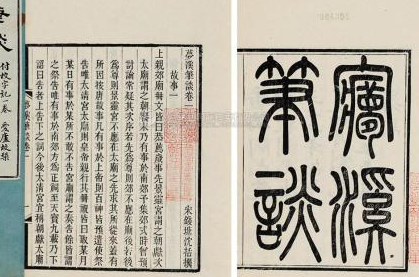 夢溪
筆談
夢溪筆談卷一
宋錢塘沈括撰
故事一
上親郊廟冊文皆曰恭薦歲事先景靈宮謂之朝獻次
太廟謂之朝饗末乃有事於南郊予集郊式時曾預
討論常疑其次序若先為尊則郊不應在廟後若後
為尊則景靈宮不應在太廟之先求其所從來蓋有
所因按唐故事凡有事於上帝則百神皆預遣使祭
告唯太清宮太廟則皇帝親行其冊祝皆曰取某月
某日有事於某所不敢不告宮廟謂之奏告餘皆謂
之祭告唯有事於南郊方為正祠至天寶九載乃下
詔曰告者上告下之詞今後太清宮宜稱朝獻太廟
談
付校字記一卷